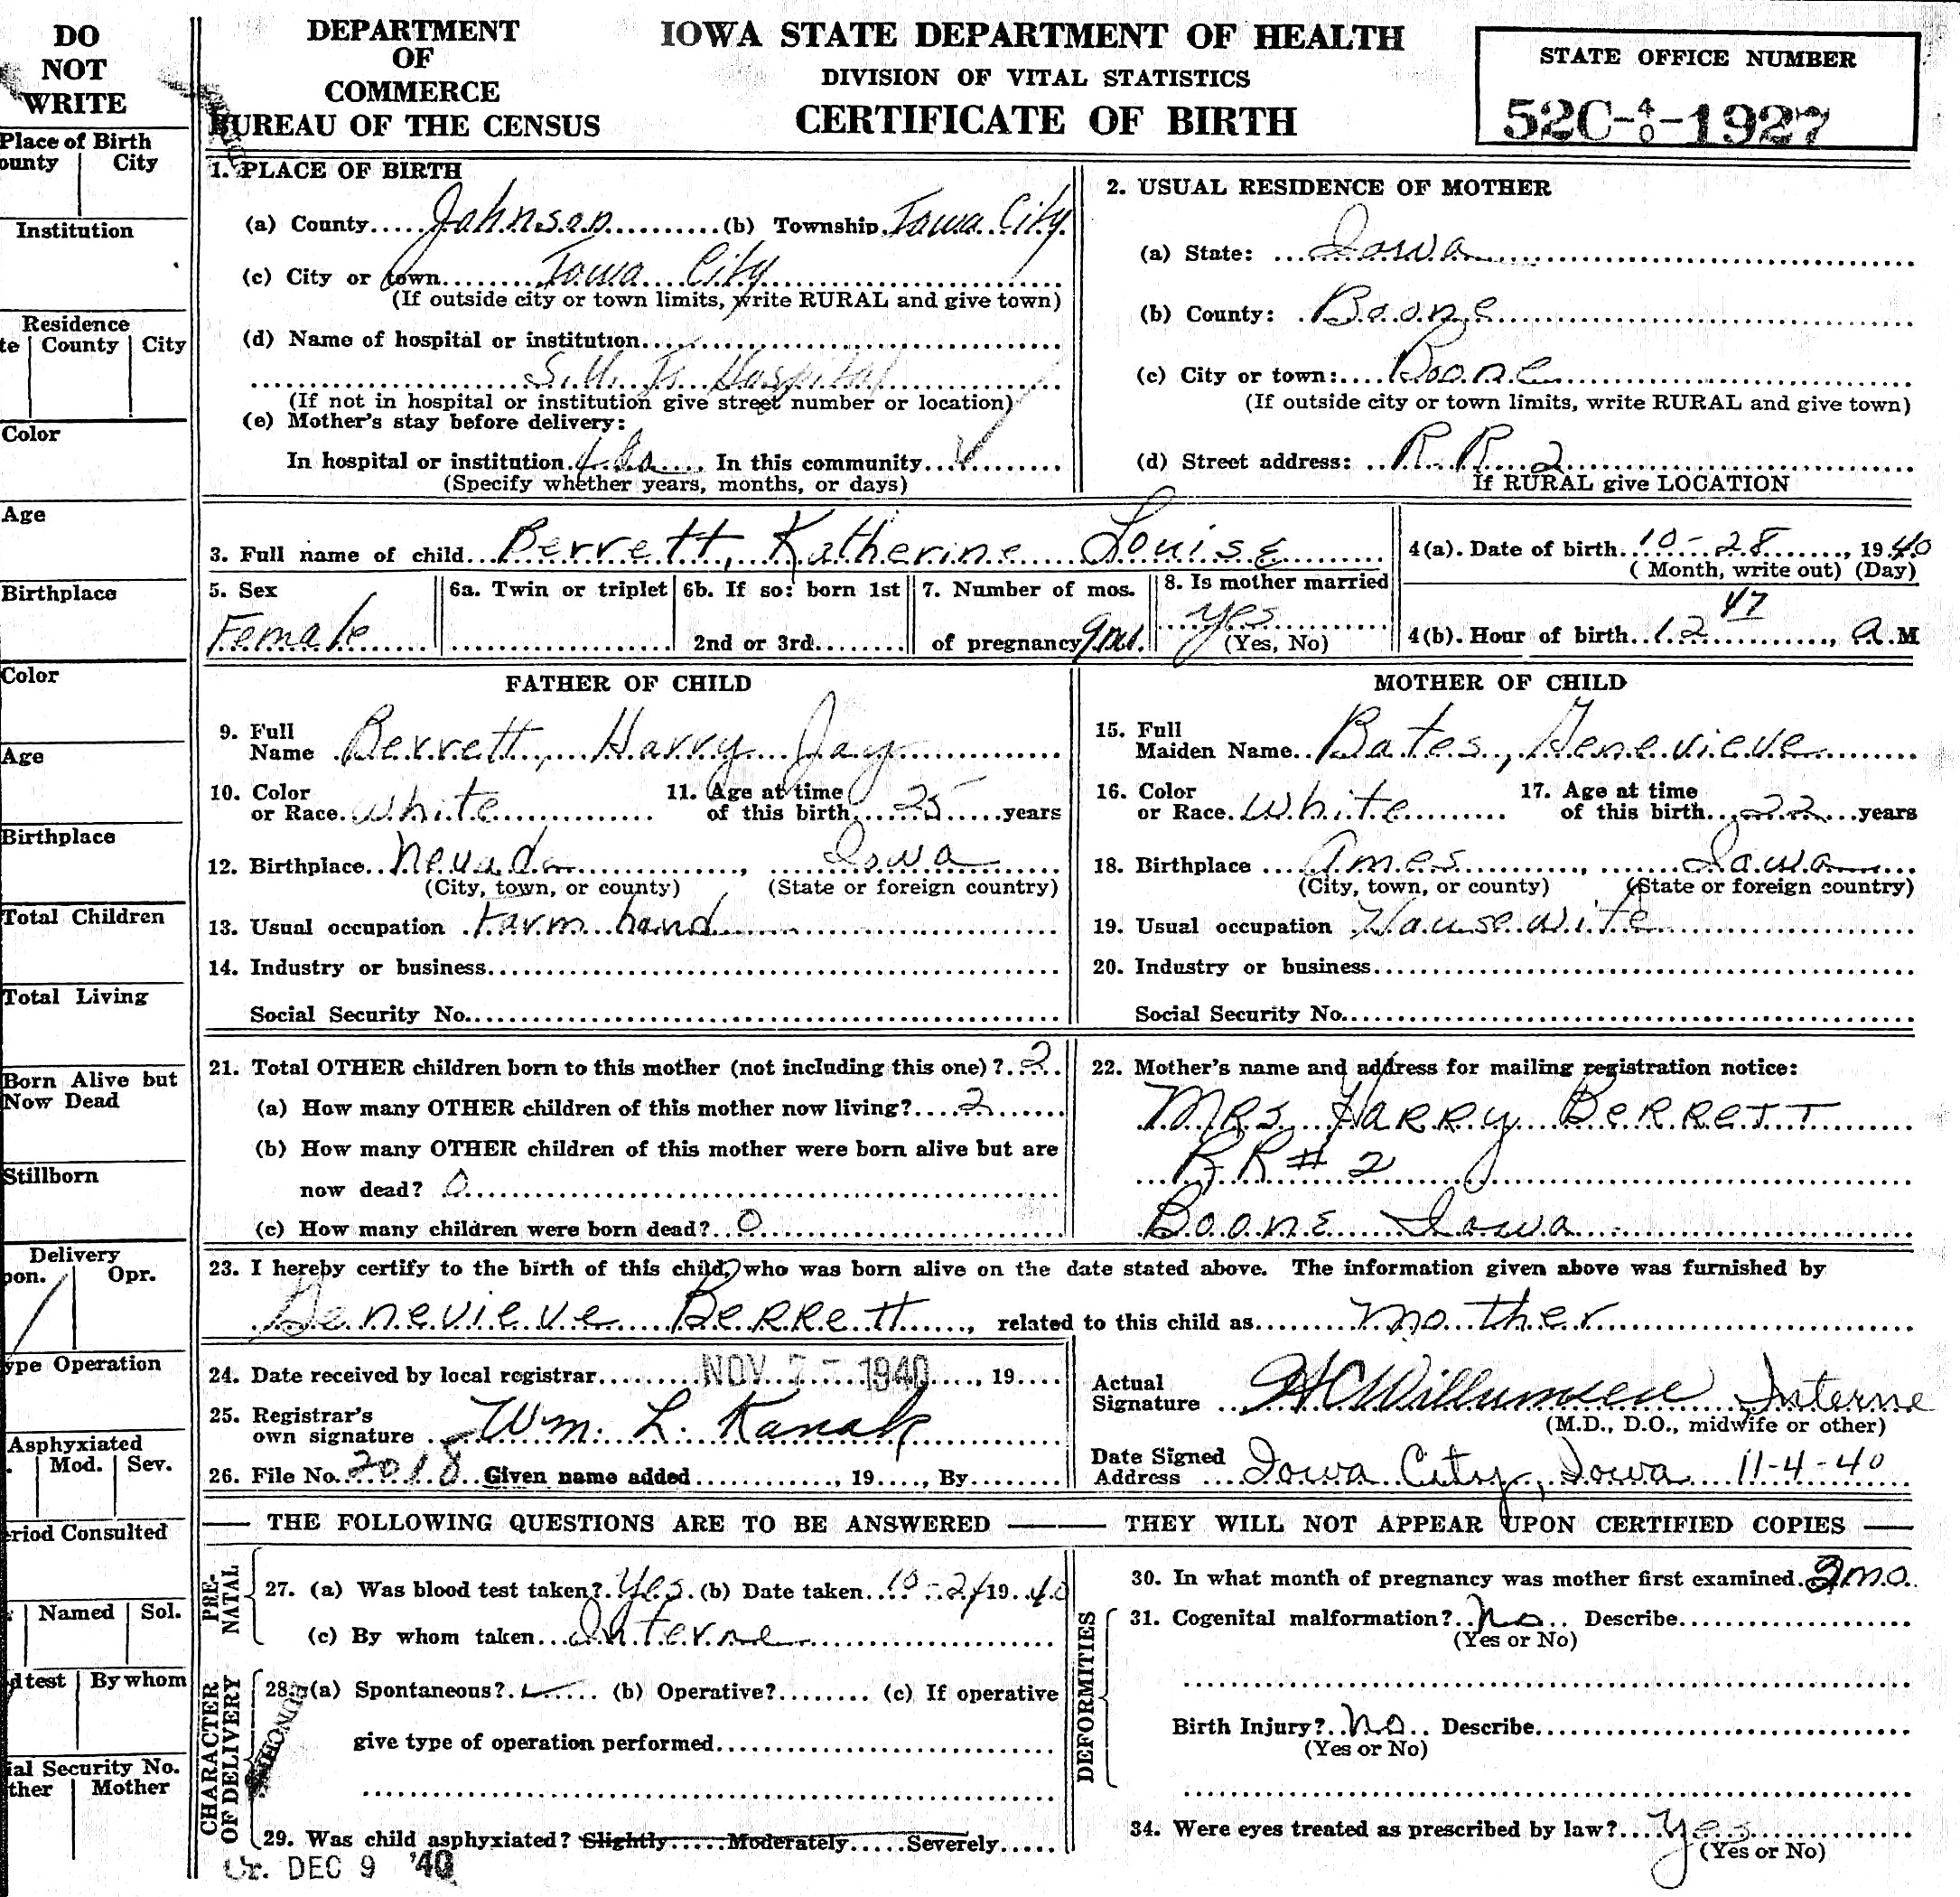 DO
NOT
WRITE
Place of Birth
ounty | City
Institution
Residence
te | County | City
Color
Age
Birthplace
Color
Age
Birthplace
Total Children
Total Living
Born Alive but
Now Dead
Stillborn
Delivery
pon. Opr.
ype Operation
Asphyxiated
Mod. Sev.
eriod Consulted
Named Sol.
d test By whom
ial Security No.
ther Mother
DEPARTMENT
OF
COMMERCE
BUREAU OF THE CENSUS
IOWA STATE DEPARTMENT OF HEALTH
DIVISION OF VITAL STATISTICS
CERTIFICATE OF BIRTH
STATE OFFICE NUMBER
52C-40-1927
1. PLACE OF BIRTH
(a) County Johnson (b) Township Iowa City
(c) City or town Iowa City
(If outside city or town limits, write RURAL and give town)
(d) Name of hospital or institution
S.U.I. Hospital
(If not in hospital or institution give street number or location)
(e) Mother's stay before delivery:
In hospital or institution In this community
(Specify whether years, months, or days)
2. USUAL RESIDENCE OF MOTHER
(a) State: Iowa
(b) County: Boone
(c) City or town: Boone
(If outside city or town limits, write RURAL and give town)
(d) Street address: R R 2
If RURAL give LOCATION
3. Full name of child Berrett, Katherine Louise
4(a). Date of birth 10-28, 1940
(Month, write out) (Day)
5. Sex
Female
6a. Twin or triplet
6b. If so: born 1st
2nd or 3rd
7. Number of mos.
of pregnancy 9 mo.
8. Is mother married
yes
(Yes, No)
4(b). Hour of birth 12 47, a.M
FATHER OF CHILD
9. Full
Name Berrett, Harry Jay
10. Color
or Race White
11. Age at time
of this birth 25 years
12. Birthplace Nevada, Iowa
(City, town, or county) (State or foreign country)
13. Usual occupation Farm hand
14. Industry or business
Social Security No.
MOTHER OF CHILD
15. Full
Maiden Name Bates, Genevieve
16. Color
or Race White
17. Age at time
of this birth 22 years
18. Birthplace Ames, Iowa
(City, town, or county) (State or foreign country)
19. Usual occupation Housewife
20. Industry or business
Social Security No.
21. Total OTHER children born to this mother (not including this one)? 2
(a) How many OTHER children of this mother now living? 2
(b) How many OTHER children of this mother were born alive but are
now dead? 0
(c) How many children were born dead? 0
22. Mother's name and address for mailing registration notice:
Mrs Harry Berrett
RR # 2
Boone Iowa
23. I hereby certify to the birth of this child, who was born alive on the date stated above. The information given above was furnished by
Genevieve Berrett, related to this child as mother
24. Date received by local registrar NOV 7 - 1940, 19
25. Registrar's
own signature Wm. L. Kanak
26. File No. 2018 Given name added , 19 , By
Actual
Signature HC Willumsen Interne
(M.D., D.O., midwife or other)
Date Signed
Address Iowa City, Iowa 11-4-40
THE FOLLOWING QUESTIONS ARE TO BE ANSWERED — THEY WILL NOT APPEAR UPON CERTIFIED COPIES
PRE-
NATAL
27. (a) Was blood test taken? Yes (b) Date taken 10-21 1940
(c) By whom taken Interne
CHARACTER
OF DELIVERY
28. (a) Spontaneous? ✓ (b) Operative? (c) If operative
give type of operation performed
29. Was child asphyxiated? Slightly Moderately Severely
DEFORMITIES
30. In what month of pregnancy was mother first examined mo.
31. Cogenital malformation? No Describe
(Yes or No)
Birth Injury? No Describe
(Yes or No)
34. Were eyes treated as prescribed by law? Yes
(Yes or No)
DEC 9 '40